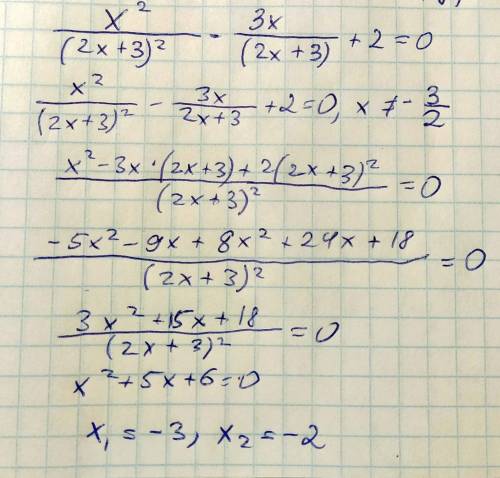 x²/(2x+3)² - 3x/(2x+3) + 2 = 0
x²/(2x+3)² - 3x/2x+3 + 2 = 0, x ≠ -3/2
x² - 3x · (2x+3) + 2(2x+3)²/(2x+3)² = 0
-5x² - 9x + 8x² + 24x + 18/(2x+3)² = 0
3x² + 15x + 18/(2x+3)² = 0
x² + 5x + 6 = 0
x₁ = -3, x₂ = -2